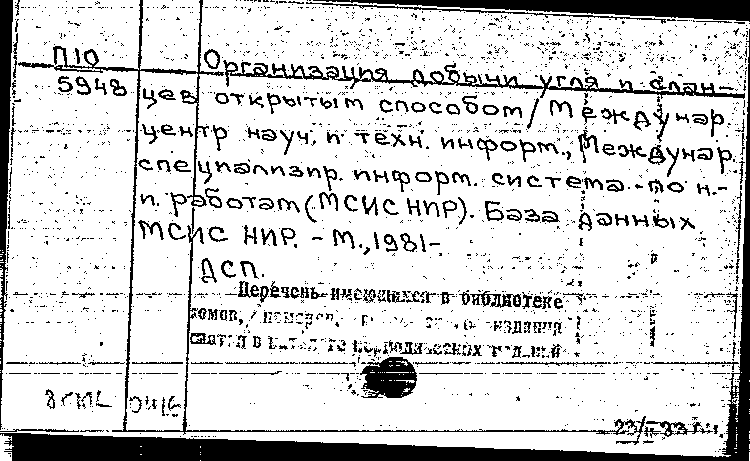 П10
5948
Организация добычи угля и слан-
цев открытым способом/Междунар.
центр науч. и техн. информ., Междунар.
специализир. информ. система по н.-
и. работам (МСИС НИР). База данных
МСИС НИР. - М., 1981-
ДСП.
Перечень имеющихся в библиотеке
томов, издания
в
23/II 83